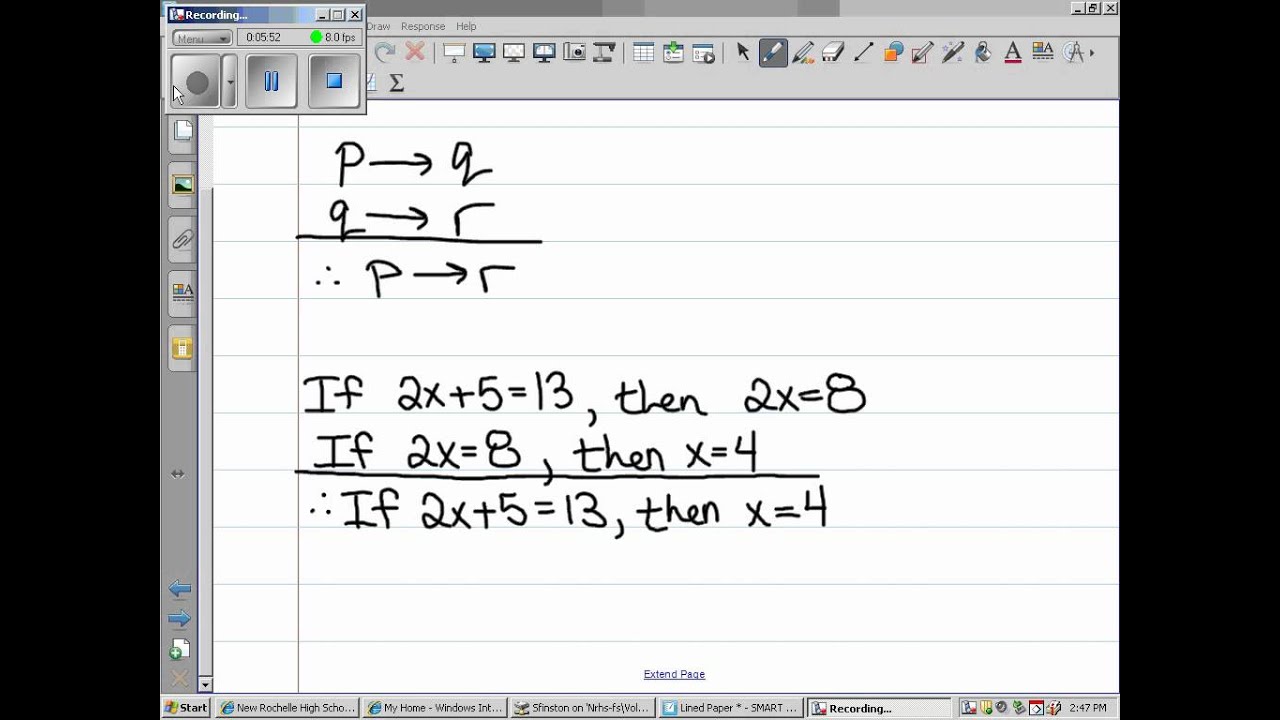 Recording...
Menu
0:05:52
8.0 fps
Draw Response Help
Σ
A
p → q
q → r
∴ p → r
If 2x+5=13, then 2x=8
If 2x=8, then x=4
∴ If 2x+5=13, then x=4
Extend Page
Start
New Rochelle High Scho...
My Home - Windows Int...
Sfinston on 'Nrhs-fs\Vol...
Lined Paper * - SMART ...
Recording...
2:47 PM